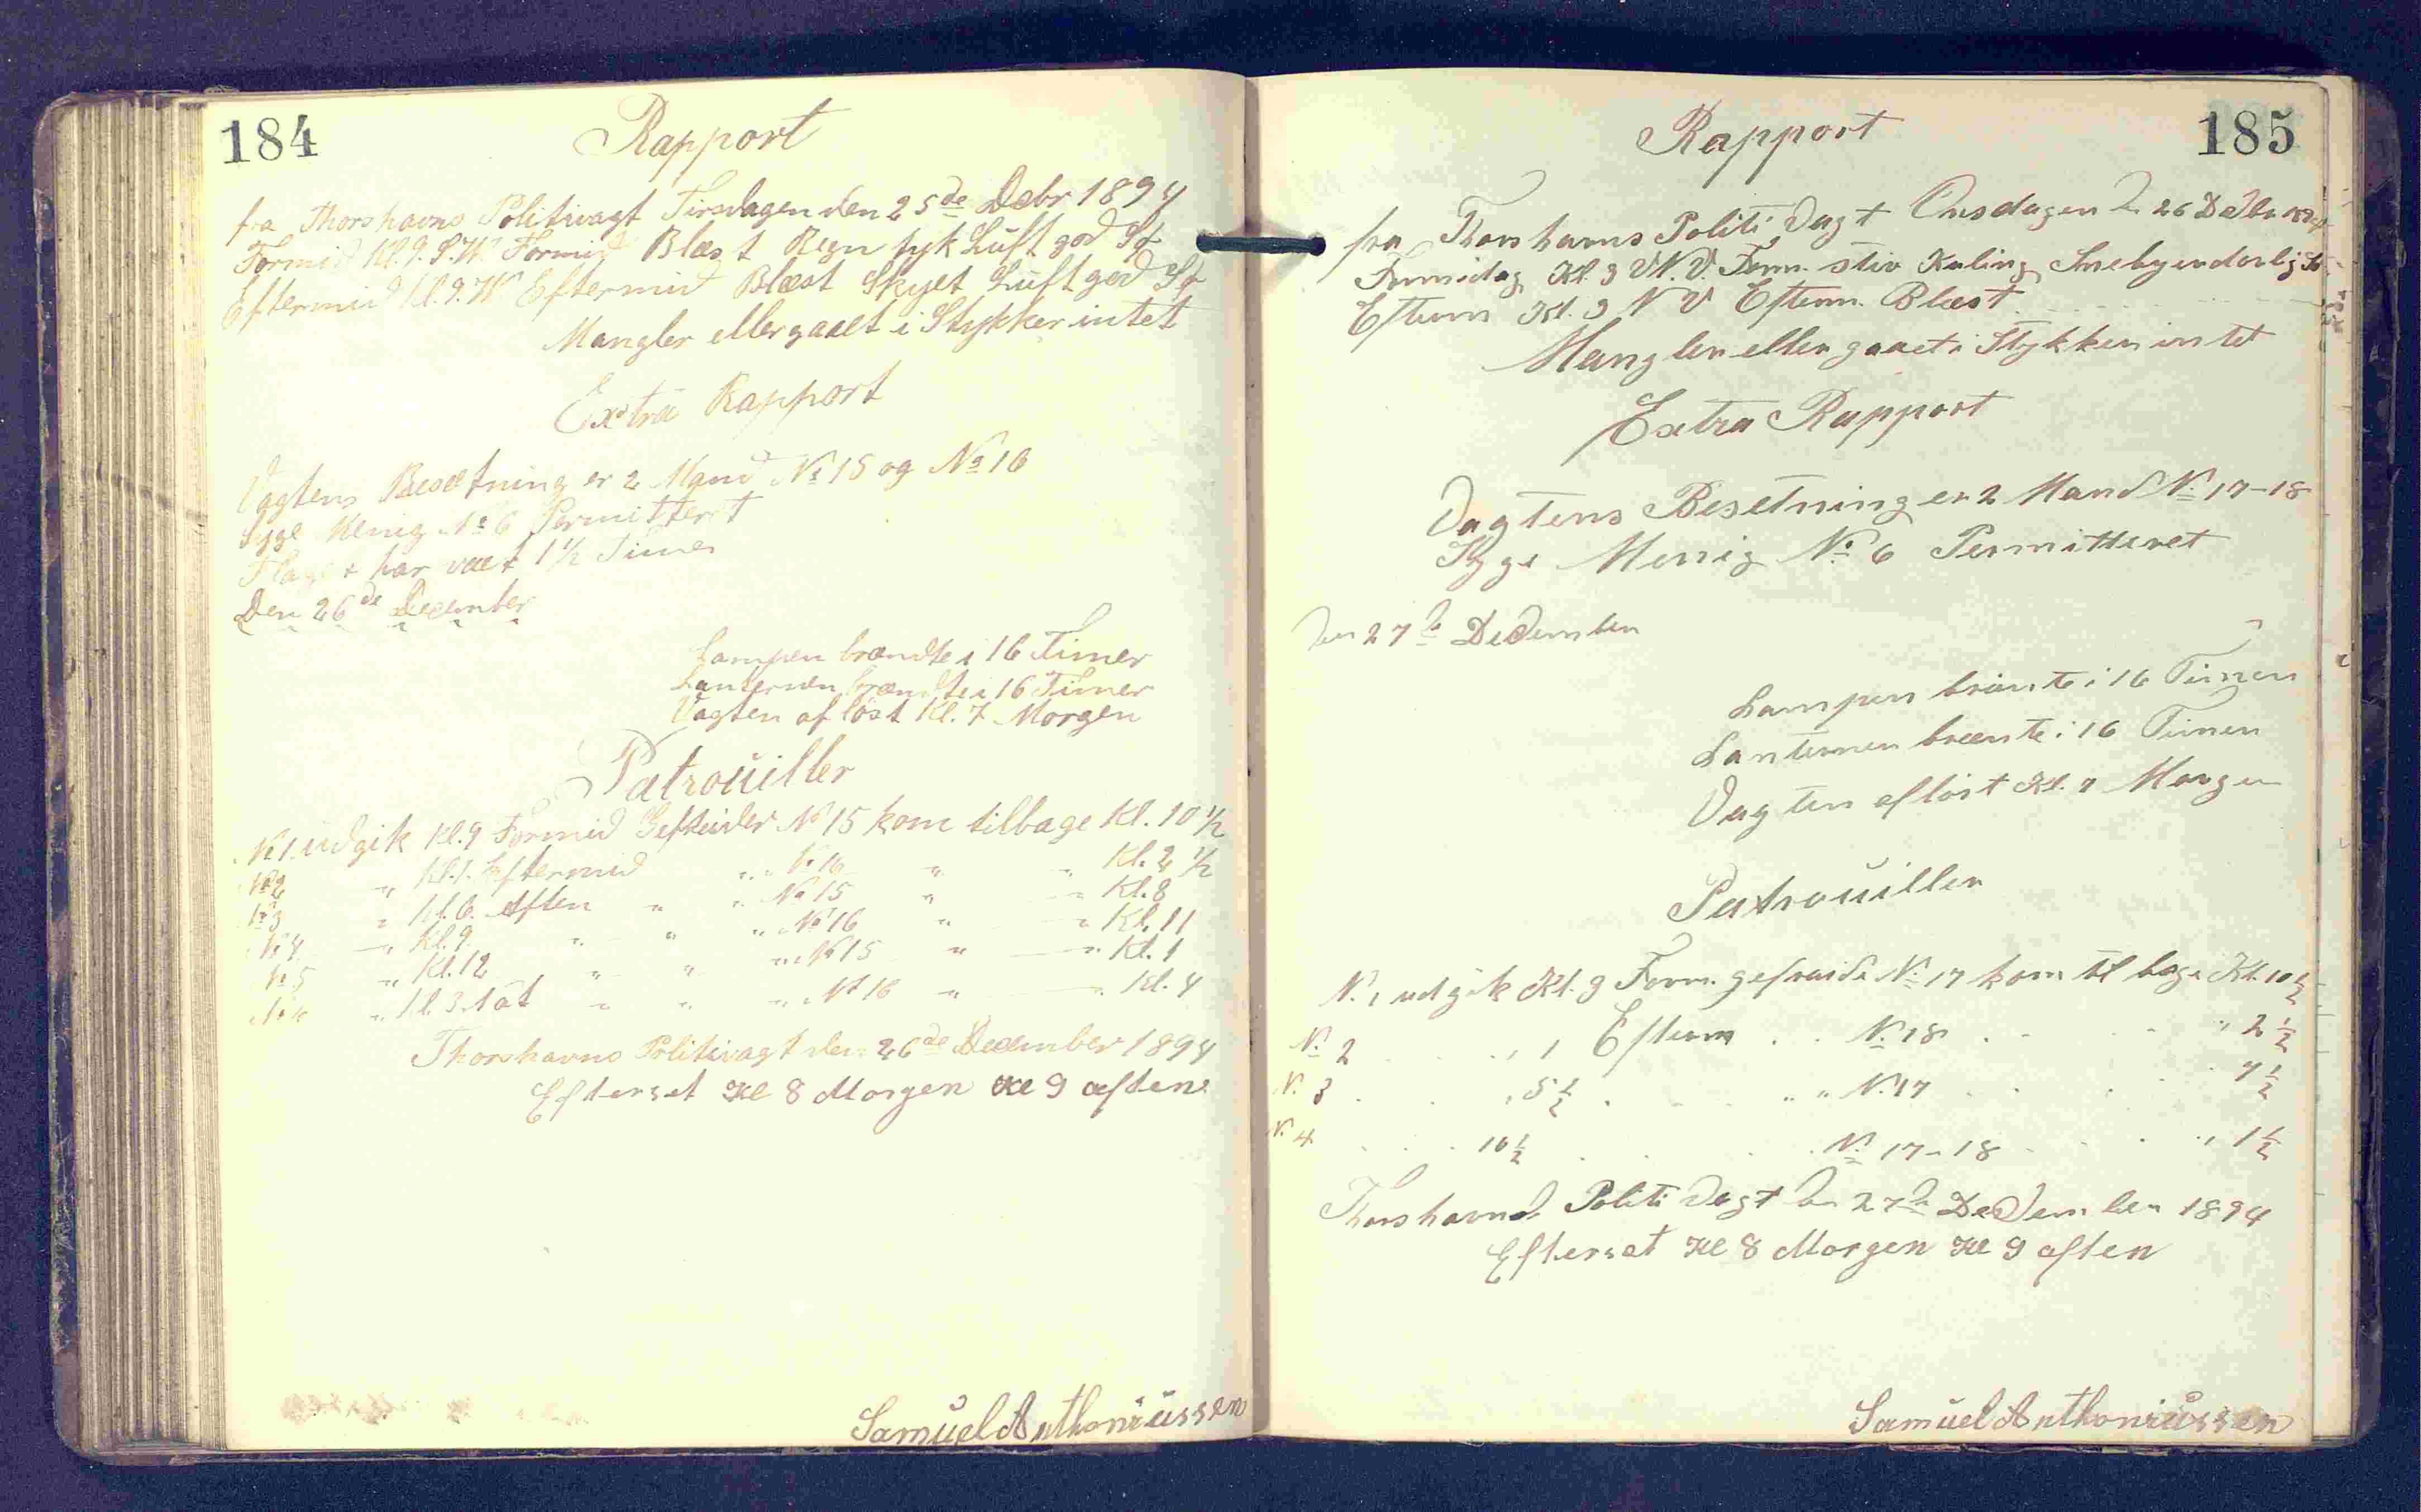 184
Rapport
fra Thorshavns Politivagt Tirsdagen den 25de Debr 1894
Formid Kl. 9. S.W. Formid Blæst Regn tyk Luft god Sg
Eftermid Kl. 9. W Eftermid Blæst Skyet Luft god Sg
Mangler eller gaaet i Stykker intet
Extra Rapport
Vagtens Besætning er 2 Mand No 15 og No 16
Syge Menig No 6 Permitteret
Flaget har væet 1 1/2 Timer
Den 26de December
Lampen brændte i 16 Timer
Lanternen brændte i 16 Timer
Vagten afløst Kl. 7 Morgen
Patrouiller
No 1 udgik Kl. 9 Formid Gefreider No 15 kom tilbage Kl. 10 1/2
No 2 " Kl. 1. Eftermid " " No 16 " " Kl. 2 1/2
No 3 " Kl. 6. Aften " " No 15 " " Kl. 8
No 4 " Kl. 9. " " " No 16 " " Kl. 11
No 5 " Kl. 12 " " " No 15 " " Kl. 1
No 6 " Kl. 3. Nat " " " No 16 " " Kl. 4
Thorshavns Politivagt den 26de December 1894
Efterset Kl 8 Morgen Kl 9 aften
Samuel Anthoniussen
185
Rapport
fra Thorshavns Politi Vagt Onsdagen D. 26 Decbr 1894
Formidag Kl. 9 V.N.V. Form. stiv Kuling Snebyer daarlig S
Efterm Kl. 9 N V Efterm. Blæst
Mangler eller gaaet i Stykker intet
Extra Rapport
Vagtens Besetning er 2 Mand No 17-18
Syge Menig No 6 Permitteret
Den 27de December
Lampen brænte i 16 Timer
Lanternen brænte i 16 Timer
Vagten afløst Kl. 7 Morgen
Patrouiller
N. 1 udgik Kl. 9 Form. gefraide No 17 kom til bage Kl. 10 1/2
No 2 . . " 1 Efterm . . No 18 . . " 2 1/2
N. 3 . . " 5 1/2 . . " " N. 17 . . . 7 1/2
N. 4 . . . 10 1/2 . . . No 17-18 . . " 1 1/2
Thorshavns Politi Vagt den 27de December 1894
Efterset Kl 8 Morgen Kl 9 aften
Samuel Anthoniussen